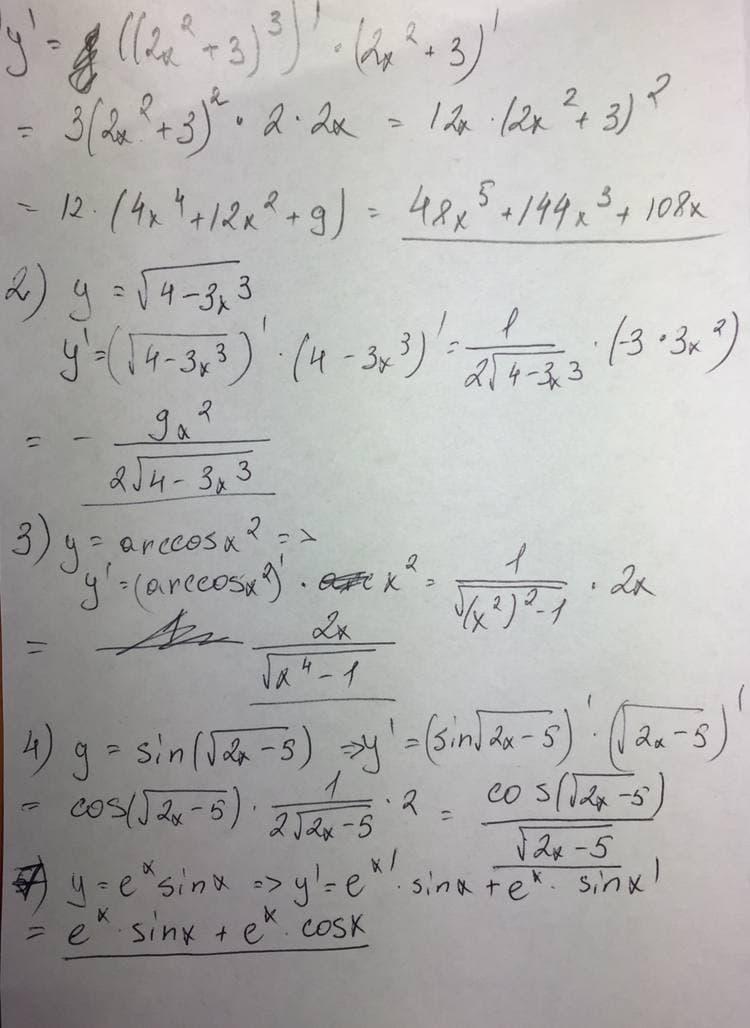 y' = ((2x² + 3)³)' · (2x² + 3)'
= 3(2x² + 3)² · 2 · 2x = 12x · (2x² + 3)²
= 12 · (4x⁴ + 12x² + 9) = 48x⁵ + 144x³ + 108x
2) y = √(4 - 3x³)
y' = (√(4 - 3x³))' · (4 - 3x³)' = 1/(2√(4 - 3x³)) · (-3 · 3x²)
= - 9x²/(2√(4 - 3x³))
3) y = arccosx² =>
y' = (arccosx²)' · x² = 1/√((x²)² - 1) · 2x
= 2x/√(x⁴ - 1)
4) y = sin(√(2x - 5)) => y' = (sin√(2x - 5))' · (√(2x - 5))'
= cos(√(2x - 5)) · 1/(2√(2x - 5)) · 2 = cos(√(2x - 5))/√(2x - 5)
y = eˣ sinx => y' = eˣ' · sinx + eˣ · sinx'
= eˣ · sinx + eˣ · cosx